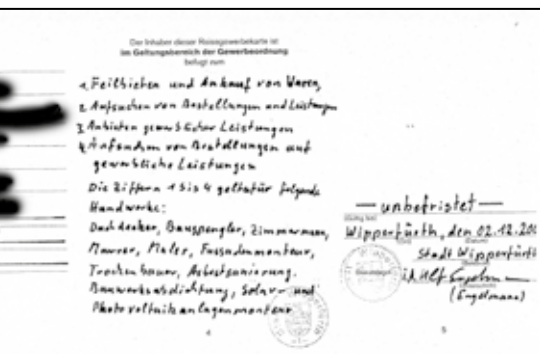 Der Inhaber dieser Reisegewerbekarte ist
im Geltungsbereich der Gewerbeordnung
befugt zum
1. Feilbieten und Ankauf von Waren,
2. Aufsuchen von Bestellungen und Leistungen
3. Anbieten gewerblicher Leistungen
4. Aufsuchen von Bestellungen auf
gewerbliche Leistungen
Die Ziffern 1 bis 4 gelten für folgende
Handwerke:
Dachdecker, Bauspengler, Zimmermann,
Maurer, Maler, Fassadenmonteur,
Trockenbauer, Asbestsanierung.
Bauwerksabdichtung, Solar- und
Photovoltaikanlagenmonteur
4
— unbefristet —
(Gültig bis)
Wipperfürth, den 02.12.20
(Datum)
Stadt Wipperfürth
i.A.
(Engelmann)
5